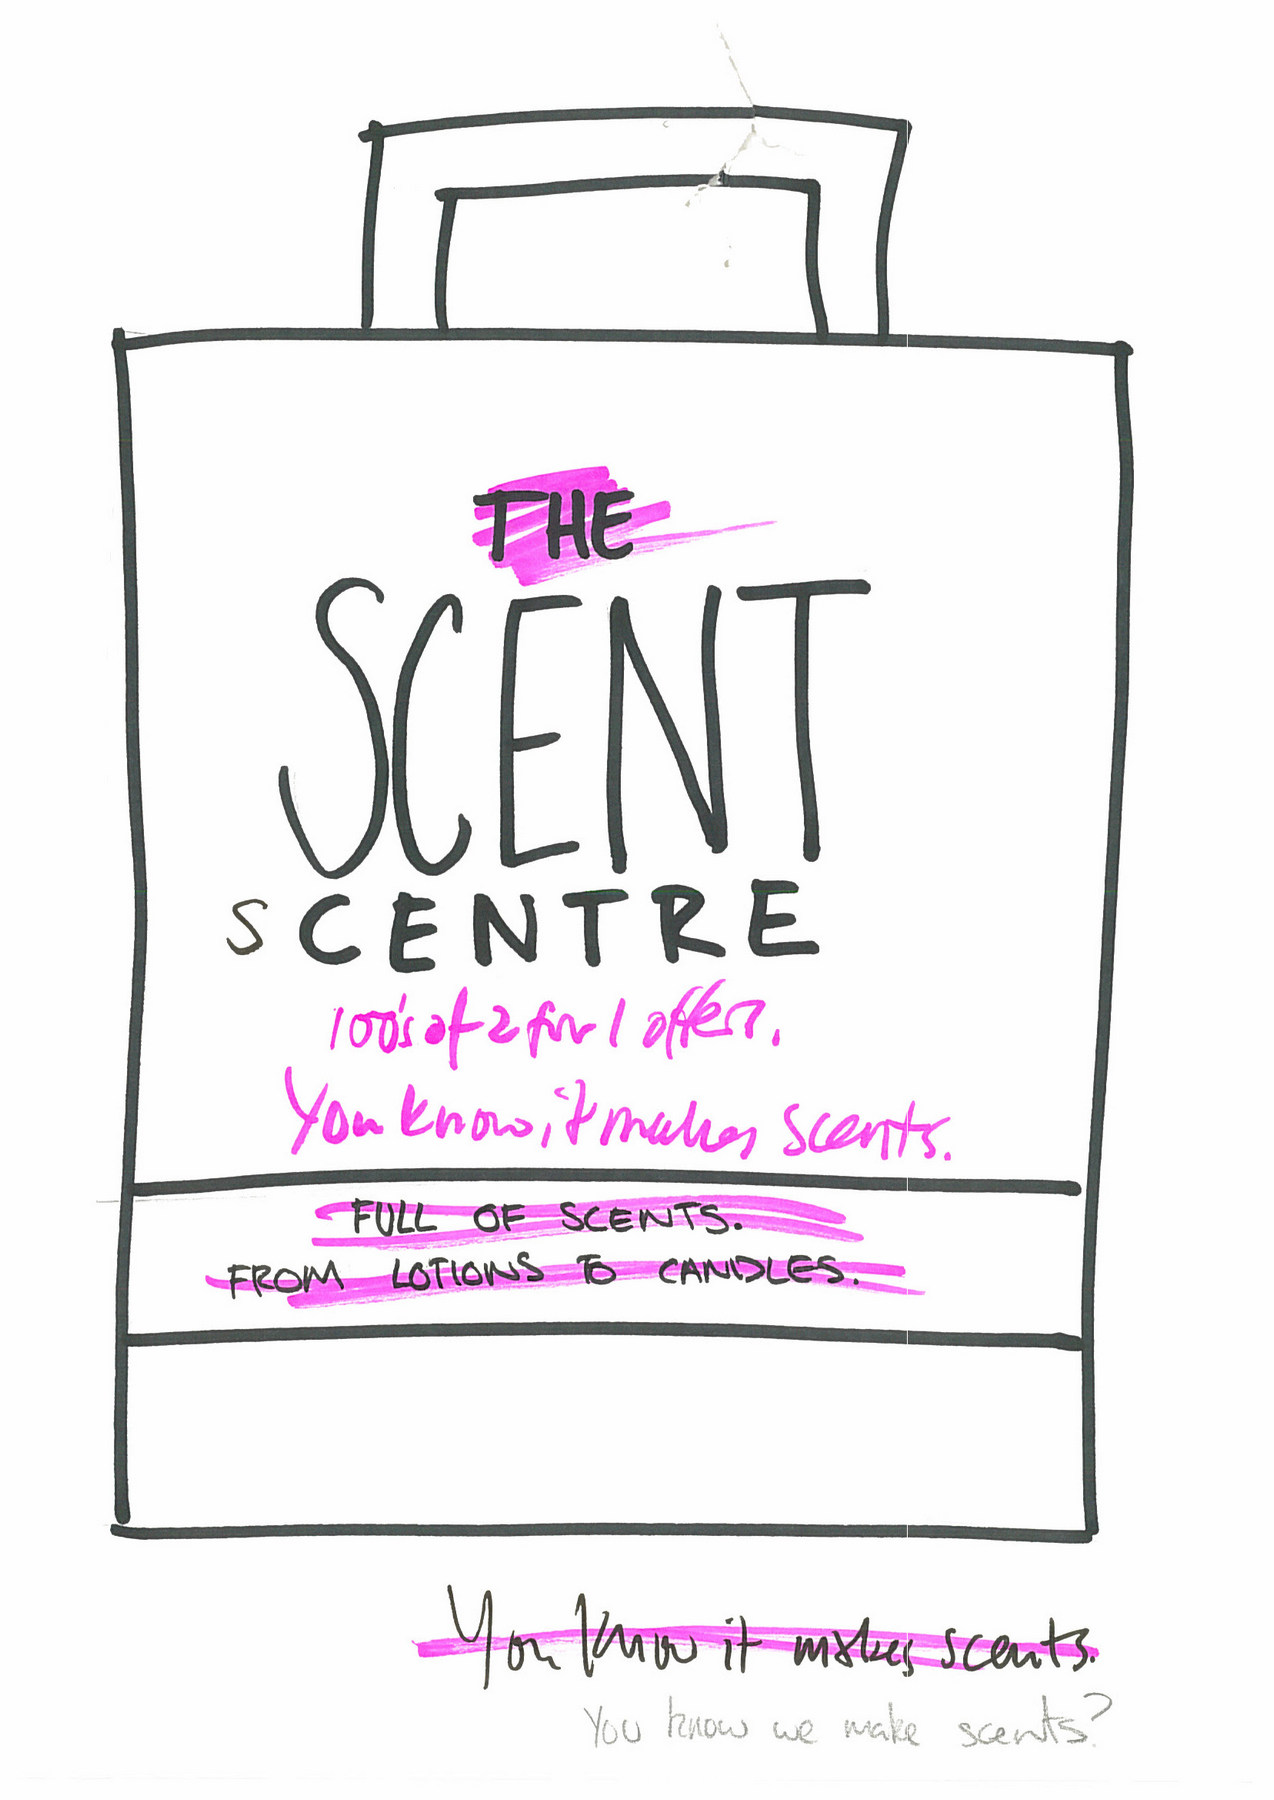 THE
SCENT
SCENTRE
100's of 2 for 1 offers.
You know, it makes scents.
FULL OF SCENTS.
FROM LOTIONS TO CANDLES.
You know it makes scents.
You know we make scents?